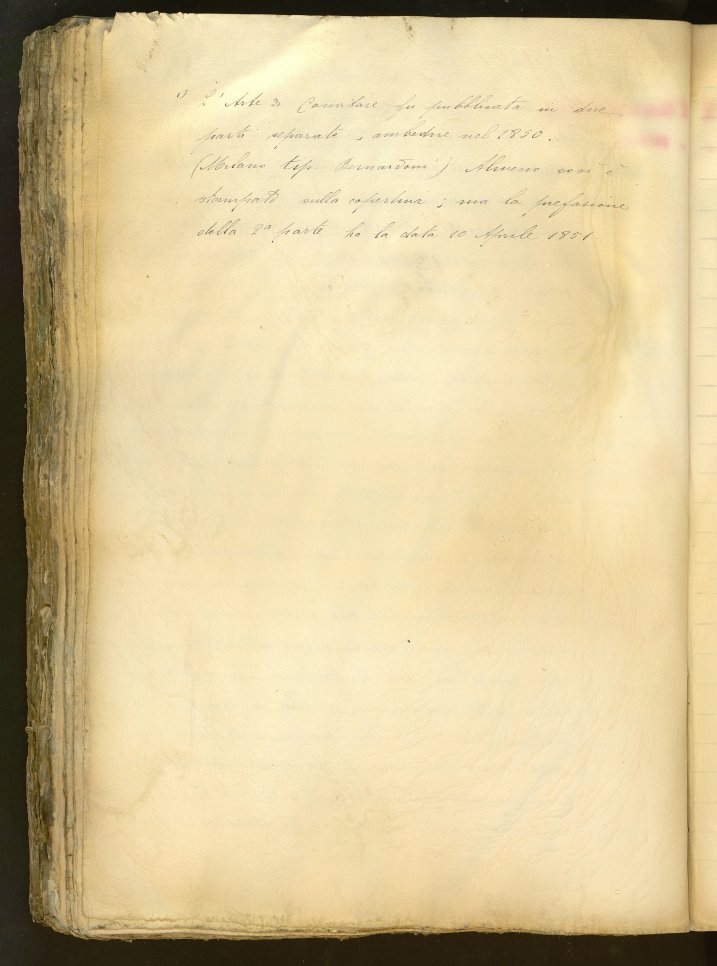 1) L'Arte di Convitare fu pubblicata in due
parti separate, ambedue nel 1850.
(Milano tip. Bernardoni) Almeno così è
stampato sulla copertina; ma la prefazione
della 2a parte ha la data 10 Aprile 1851